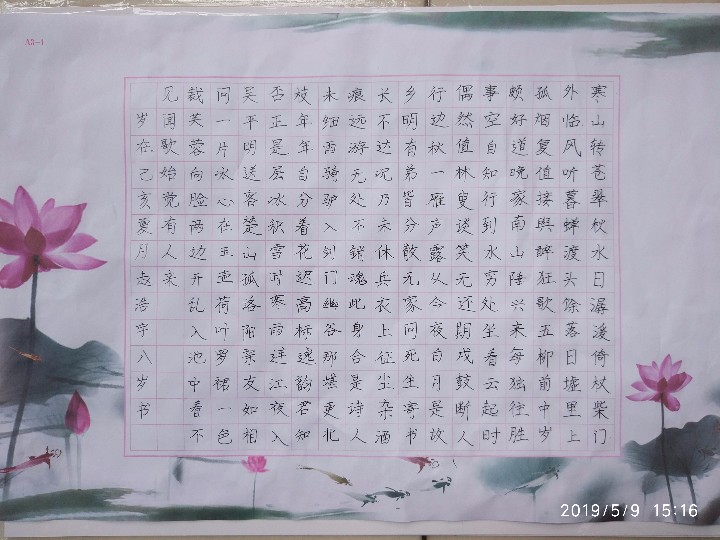 A3-1
寒山转苍翠秋水日潺湲倚杖柴门
外临风听暮蝉渡头馀落日墟里上
孤烟复值接舆醉狂歌五柳前中岁
颇好道晚家南山陲兴来每独往胜
事空自知行到水穷处坐看云起时
偶然值林叟谈笑无还期戍鼓断人
行边秋一雁声露从今夜白月是故
乡明有弟皆分散无家问死生寄书
长不达况乃未休兵衣上征尘杂酒
痕远游无处不销魂此身合是诗人
未细雨骑驴入剑门幽谷那堪更北
枝年年自分着花迟高标逸韵君知
否正是层冰积雪时寒雨连江夜入
吴平明送客楚山孤洛阳亲友如相
问一片冰心在玉壶荷叶罗裙一色
裁芙蓉向脸两边开乱入池中看不
见闻歌始觉有人来
岁在己亥夏月浩宇八岁书
2019/5/9 15:16